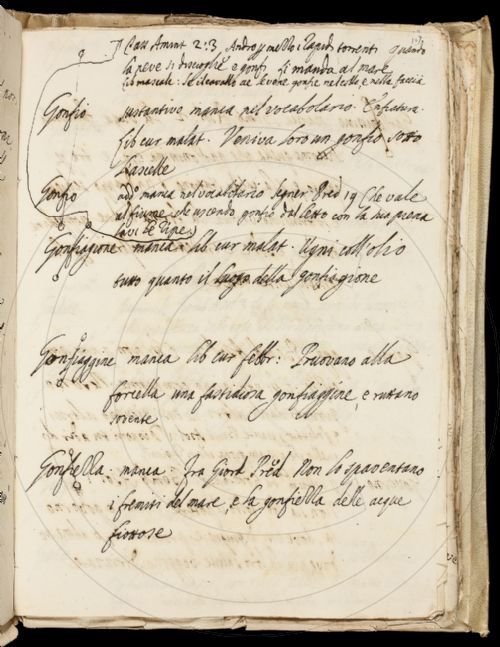 Tass Amint 2:3, Andro p mezzo i rapidi torrenti quando
la neve si discioglie e gonfi li manda al mare
lib mascalc: Se il cavallo ae le vene gonfie nel collo, e nella faccia
Gonfio sustantivo manca nel vocabolario. Enfiatura.
lib cur malat. Veniva loro un gonfio sotto
l'ascelle
Gonfio add manca nel vocabolario Segner Pred 19 Che vale
al fiume che uscendo gonfio dal letto con la sua piena
Gonfiagione manca. lib cur malat. Ugni coll'olio
tutto quanto il luogo della gonfiagione
Gonfiaggine manca lib cur febbr: Pruovano alla
forcella una fastidiosa gonfiaggine, e ruttano
sovente
Gonfiezza manca. Fra Giord Pred Non lo spaventano
i fremiti del mare, e la gonfiezza delle acque
fiottose